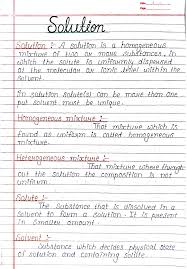 Solution
Solution :- A solution is a homogeneous
mixture of two or more substances, in
which the solute is uniformly dispersed
at the molecular or ionic level within the
solvent.
In solution solute(s) can be more than one
but solvent must be unique.
Homogeneous mixture :-
That mixture which is
found as uniform is called homogeneous
mixture.
Heterogeneous mixture :-
That mixture where through
out the solution the composition is not
uniform.
Solute :-
The substance that is dissolved in a
solvent to form a solution. It is present
in smaller amount.
Solvent :-
Substance which decides physical state
of solution and containing solute.